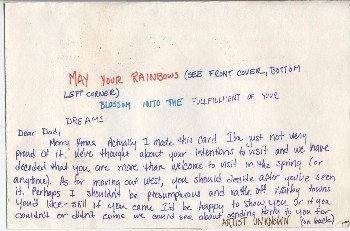 MAY YOUR RAINBOWS (SEE FRONT COVER, BOTTOM
LEFT CORNER)
BLOSSOM INTO THE FULFILLMENT OF YOUR
DREAMS
Dear Dad,
Merry Xmas. Actually I made this card I'm just not very
proud of it. We've thought about your intentions to visit and we have
decided that you are more than welcome to visit in the spring (or
anytime). As for moving out west, you should decide after you've seen
it. Perhaps I shouldn't be presumptuous and rattle off nearby towns
you'd like - still if you came I'd be happy to show you. Or if you
couldn't or didn't come we could see about sending to you for
ARTIST UNKNOWN (on back)